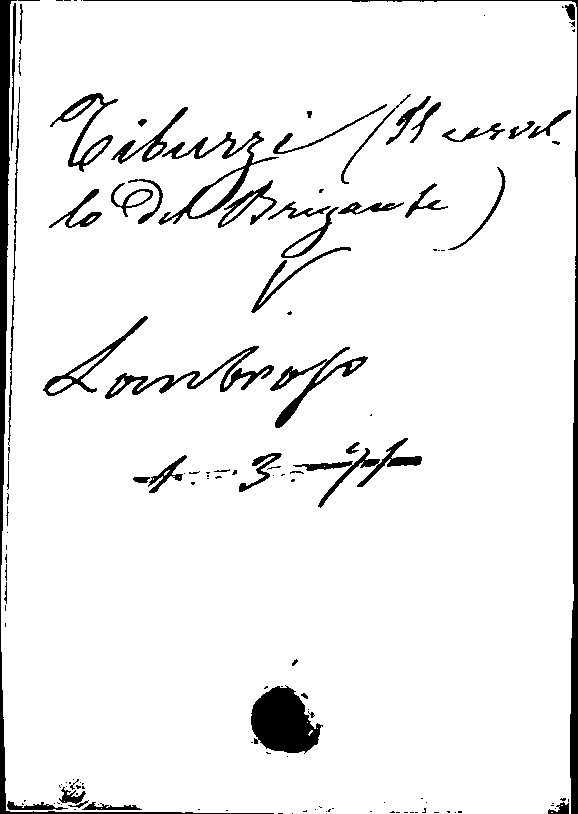 Tiburzi (Il cervel-
lo del Brigante)
V.
Lombroso